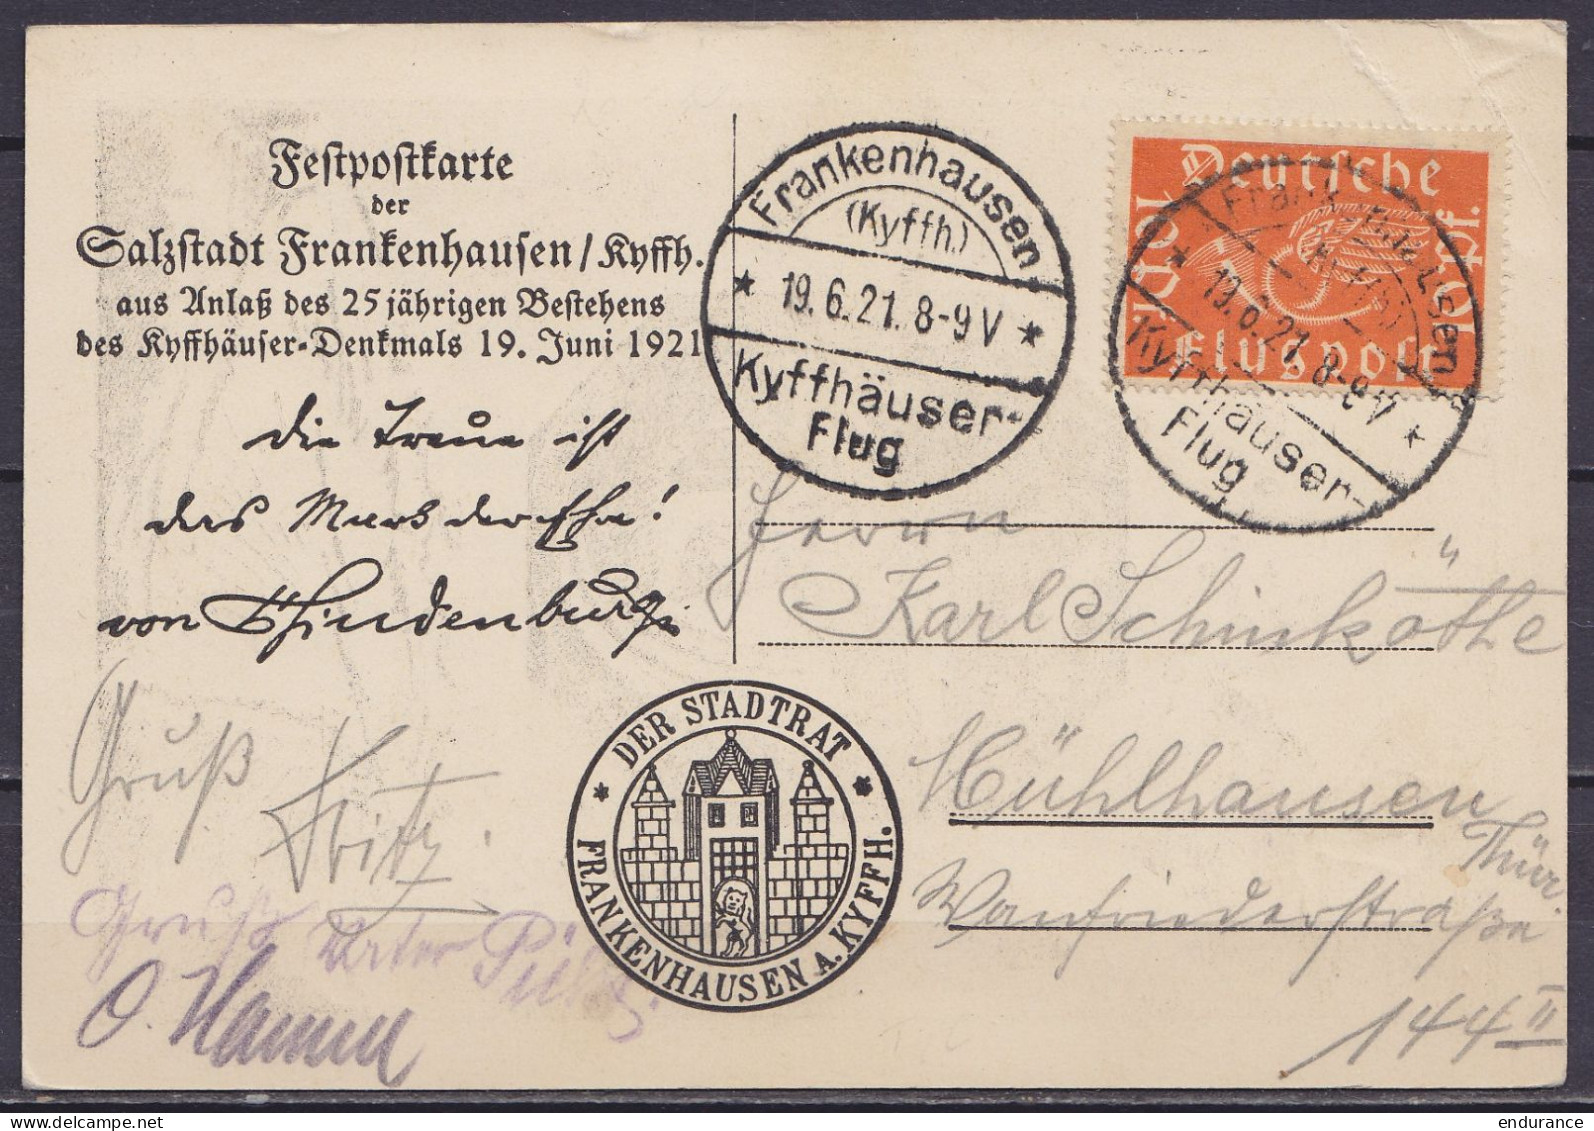 Festpostkarte
der
Salzstadt Frankenhausen/Kyffh.
aus Anlaß des 25jährigen Bestehens
des Kyffhäuser-Denkmals 19. Juni 1921
die Treue ist
das Mark der Ehre!
von Hindenburg
Gruß
Fritz.
Gruß Vater
O. Hamm
DER STADTRAT
* FRANKENHAUSEN A. KYFFH. *
Frankenhausen
(Kyffh.)
* 19.6.21. 8-9 V *
Kyffhäuser-
Flug
Deutsche
10 Pf. 10 Pf.
Flugpost
Frankenhausen
(Kyffh.)
* 19.6.21. 8-9 V *
Kyffhäuser-
Flug
Herrn
Karl Schinköthe
Mühlhausen
Thür.
Wanfriederstraße
144 II
endurance